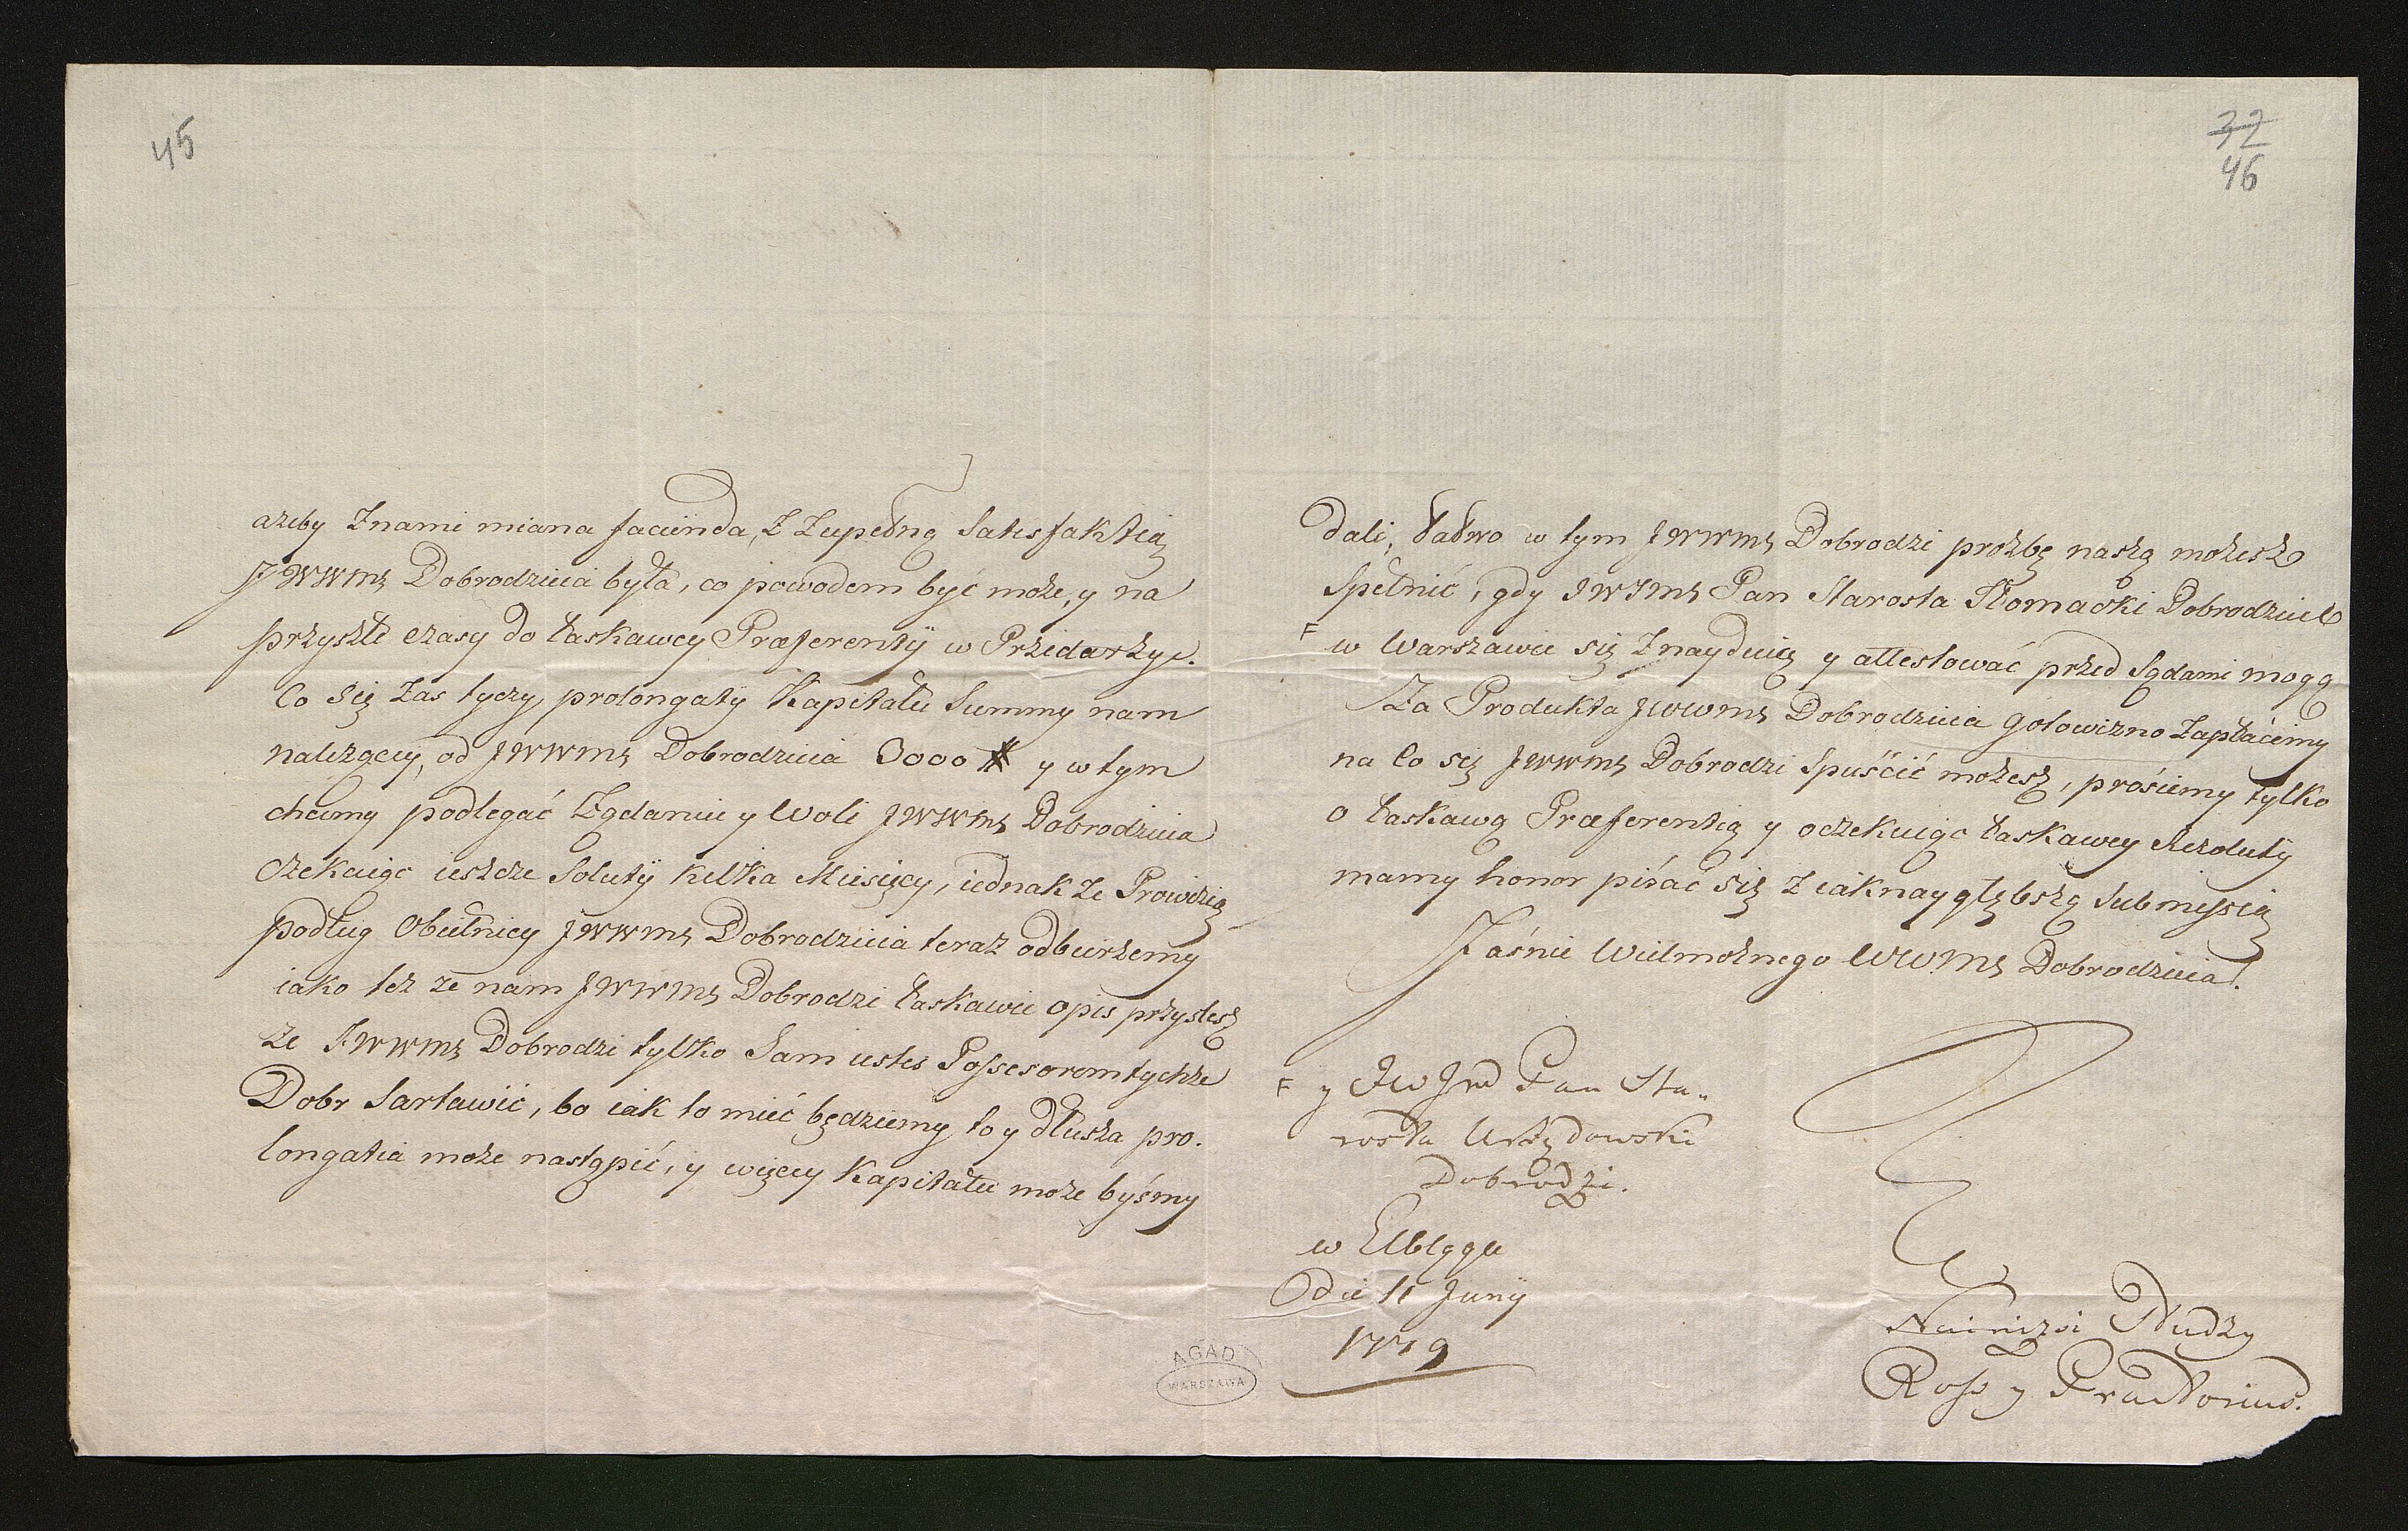 45
azeby Znami miana facienda, Z Zupełną Satisfaktią
JWWMs Dobrodzieia była, co powodem być może, y na
przyszłe czasy do łaskawey Præferentÿ w Przedarzÿ.
Co Się Zas tyczy, prolongatÿ Kapitału Summy nam
nalezącey, od JWWMs Dobrodzieia 3000 # y w tym
chcemy podlegać Ządaniu y Woli JWWMs Dobrodzieia
czekaiąc ieszcze Solutÿ kilka Miesięcy, iednak ze Prowizią
podług Obietnicy JWWMs Dobrodzieia teraz odbierzemy
iako tez ze nam JWWMs Dobrodzi łaskawie opis przyslesz
ze JWWMs Dobrodzi tylko Sam iestes Possesorem tychze
Dobr Sartawic, bo iak to mieć będziemy to y dłusza pro.
longatia może nastąpić, y więcey Kapitału może byśmy
32
46
dali, łatwo w tym JWWMs Dobrodzi prozbę naszą możesz
Spełnić, gdy JWJMs Pan Starosta Tłomacki Dobrodziei
F w Warszawie się Znayduię y attestować przed Sądami mogą
Za Produkta JWWMs Dobrodzieia Gotowizno Zapłacimy
na Co się JWWMs Dobrodzi Spuścić możesz, prosiemy tylko
o łaskawą Præferentią y oczekuiąc łaskawey Rezolutÿ
mamy honor pisać się z iaknaygłębszą Submissią
Jaśnie Wielmożnego WWMs Dobrodzieia!
F y JW Jmd Pan Sta„
rosta Urzędowski
Dobrodzi.
w Elblągu
Die 11 Junÿ
1779
Nainizsi Słudzy
Ross y Praetorius.
AGAD
WARSZAWA